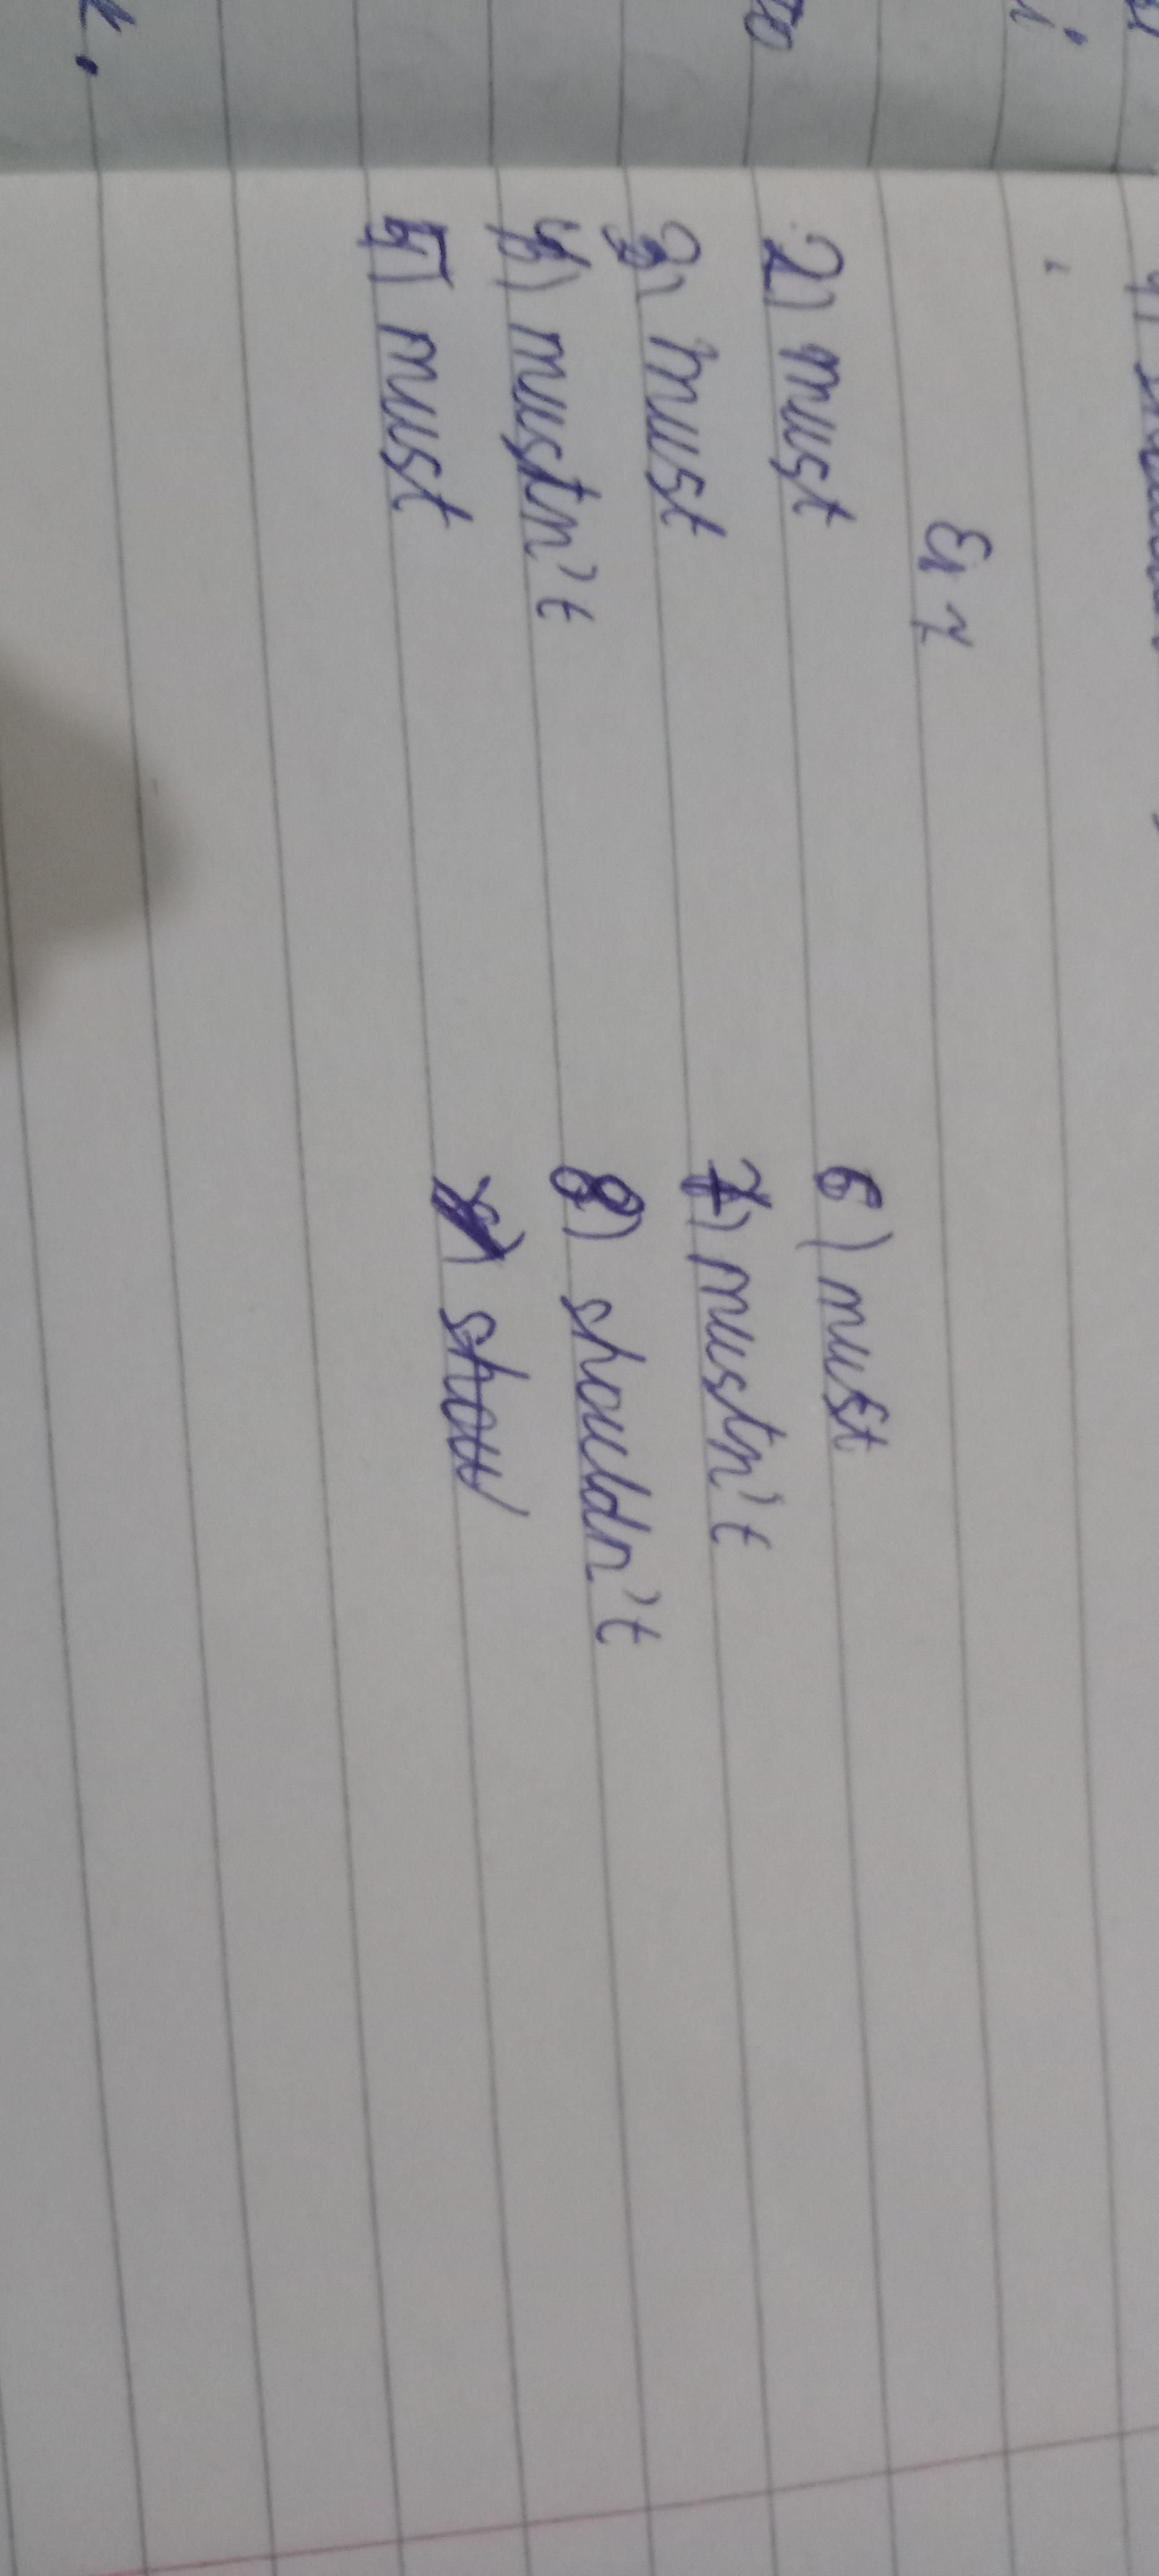 Ex 7
2) must
3) must
4) mustn't
5) must
6) must
7) mustn't
8) shouldn't